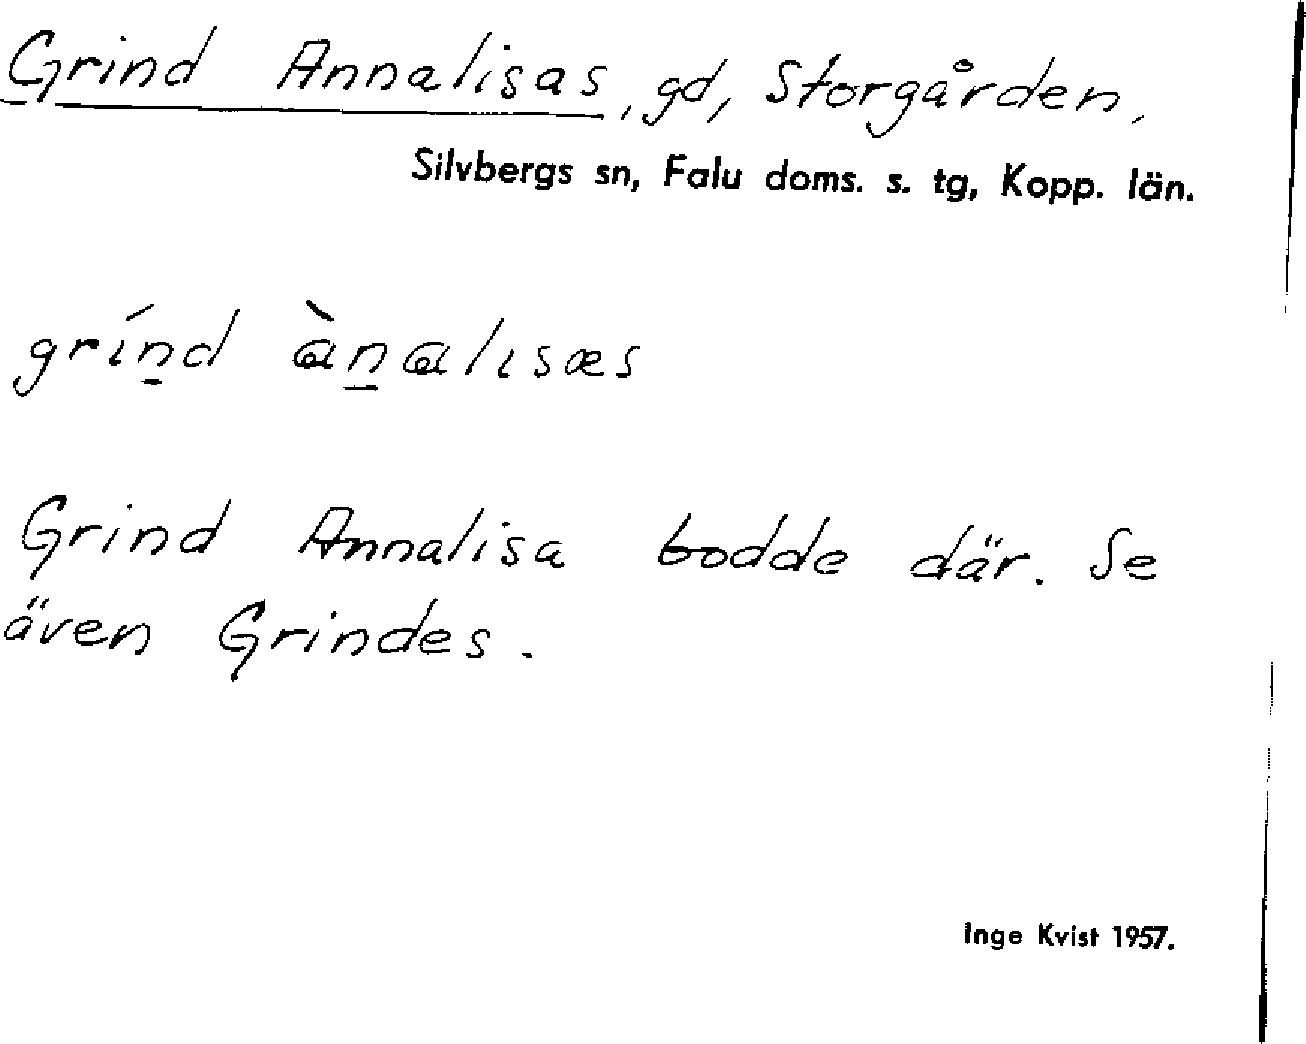 Grind Annalisas, gd, Storgården,
Silvbergs sn, Falu doms. s. tg, Kopp. län.
grín̠d àn̠alısæs
Grind Annalisa bodde där. Se
även Grindes.
Inge Kvist 1957.